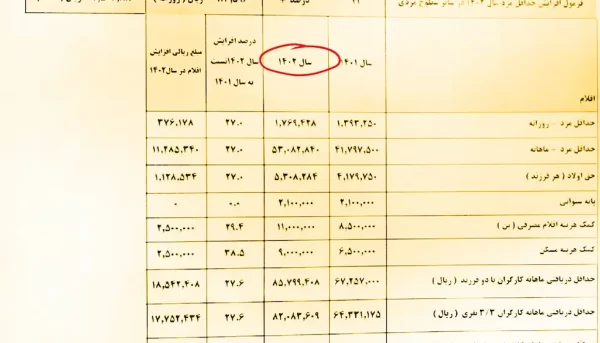 فرمول افزایش حداقل مزد سال ۱۴۰۲ در سایر سطوح مزدی ۲۱ درصد + ریال ( روزانه )
اقلام سال ۱۴۰۱ سال ۱۴۰۲ درصد افزایش سال ۱۴۰۲ نسبت به سال ۱۴۰۱ مبلغ ریالی افزایش اقلام در سال ۱۴۰۲
حداقل مزد - روزانه ۱,۳۹۳,۲۵۰ ۱,۷۶۹,۴۲۸ ۲۷.۰ ۳۷۶,۱۷۸
حداقل مزد - ماهانه ۴۱,۷۹۷,۵۰۰ ۵۳,۰۸۲,۸۴۰ ۲۷.۰ ۱۱,۲۸۵,۳۴۰
حق اولاد ( هر فرزند ) ۴,۱۷۹,۷۵۰ ۵,۳۰۸,۲۸۴ ۲۷.۰ ۱,۱۲۸,۵۳۴
پایه سنواتی ۲,۱۰۰,۰۰۰ ۲,۱۰۰,۰۰۰ ۰.۰ ۰
کمک هزینه اقلام مصرفی ( بن ) ۸,۵۰۰,۰۰۰ ۱۱,۰۰۰,۰۰۰ ۲۹.۴ ۲,۵۰۰,۰۰۰
کمک هزینه مسکن ۶,۵۰۰,۰۰۰ ۹,۰۰۰,۰۰۰ ۳۸.۵ ۲,۵۰۰,۰۰۰
حداقل دریافتی ماهانه کارگران با دو فرزند ( ریال ) ۶۷,۲۵۷,۰۰۰ ۸۵,۷۹۹,۴۰۸ ۲۷.۶ ۱۸,۵۴۲,۴۰۸
حداقل دریافتی ماهانه کارگران ۳/۳ نفری ( ریال ) ۶۴,۳۳۱,۱۷۵ ۸۲,۰۸۳,۶۰۹ ۲۷.۶ ۱۷,۷۵۲,۴۳۴